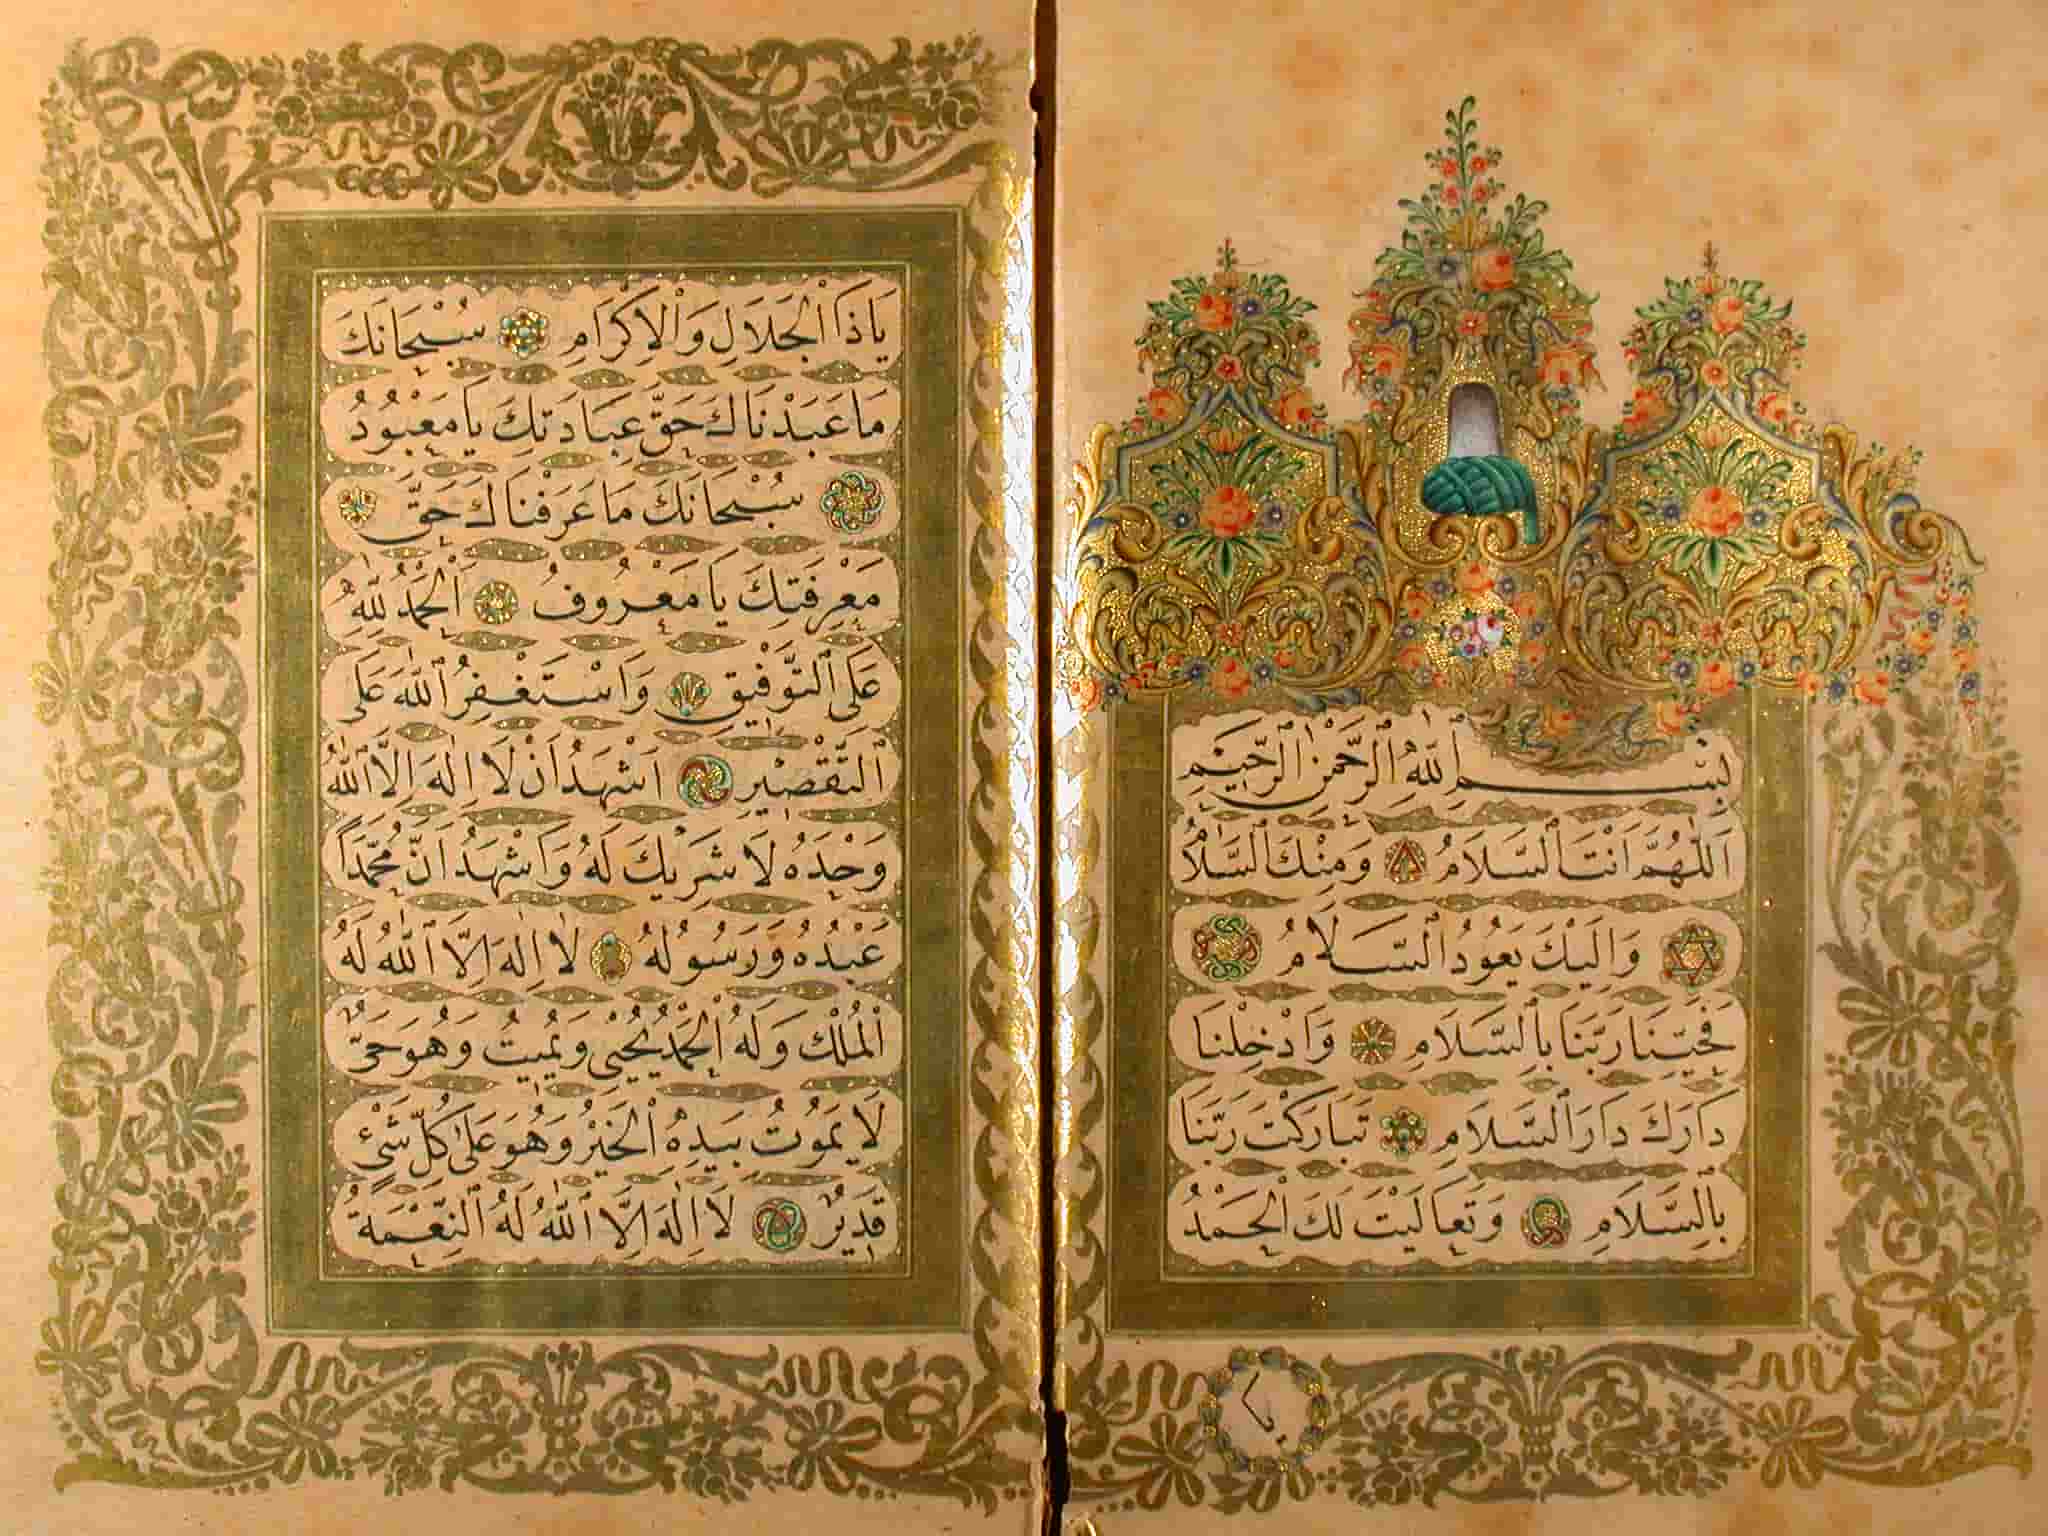 بِسْمِ اللّٰهِ الرَّحْمٰنِ الرَّحِيمِ
اَللّٰهُمَّ اَنْتَ السَّلَامُ وَمِنْكَ السَّلَامُ
وَاِلَيْكَ يَعُودُ السَّلَامُ
فَحَيِّنَا رَبَّنَا بِالسَّلَامِ وَاَدْخِلْنَا
دَارَكَ دَارَ السَّلَامِ تَبَارَكْتَ رَبَّنَا
بِالسَّلَامِ وَتَعَالَيْتَ لَكَ الْحَمْدُ
يَاذَا الْجَلَالِ وَالْاِكْرَامِ سُبْحَانَكَ
مَاعَبَدْنَاكَ حَقَّ عِبَادَتِكَ يَا مَعْبُودُ
سُبْحَانَكَ مَاعَرَفْنَاكَ حَقَّ
مَعْرِفَتِكَ يَا مَعْرُوفُ اَلْحَمْدُ لِلّٰهِ
عَلَى التَّوْفِيقِ وَاَسْتَغْفِرُ اللّٰهَ عَلَى
التَّقْصِيرِ اَشْهَدُ اَنْ لَا اِلٰهَ اِلَّا اللّٰهُ
وَحْدَهُ لَا شَرِيكَ لَهُ وَاَشْهَدُ اَنَّ مُحَمَّدًا
عَبْدُهُ وَرَسُولُهُ لَا اِلٰهَ اِلَّا اللّٰهُ لَهُ
الْمُلْكُ وَلَهُ الْحَمْدُ يُحْيِي وَيُمِيتُ وَهُوَ حَيٌّ
لَا يَمُوتُ بِيَدِهِ الْخَيْرُ وَهُوَ عَلَى كُلِّ شَيْءٍ
قَدِيرٌ لَا اِلٰهَ اِلَّا اللّٰهُ لَهُ النِّعْمَةُ